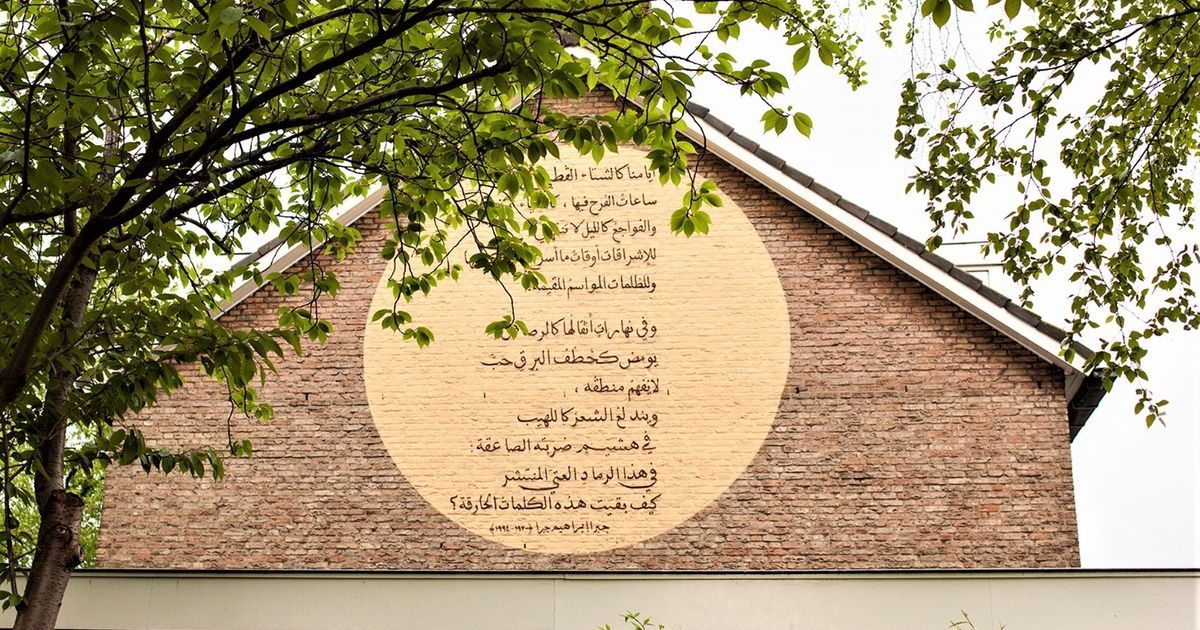 أيامنا كالشتاء القط
ساعات الفرح فيها ،
والفواجع كالليل لا
للإشراقات أوقات ما
وللظلمات المواسم المقيمة.
وفي نهارات أثقالها كالرصا
يومض كخطف البرق حبّ
لا يفهم منطقه ،
ويندلع الشعر كاللهيب
في هشيم ضربته الصاعقة :
في هذا الرماد العتيّ المنتشر
كيف بقيت هذه الكلمات الحارقة ؟
جبرا ابراهيم جبرا (١٩٢٠-١٩٩٤)